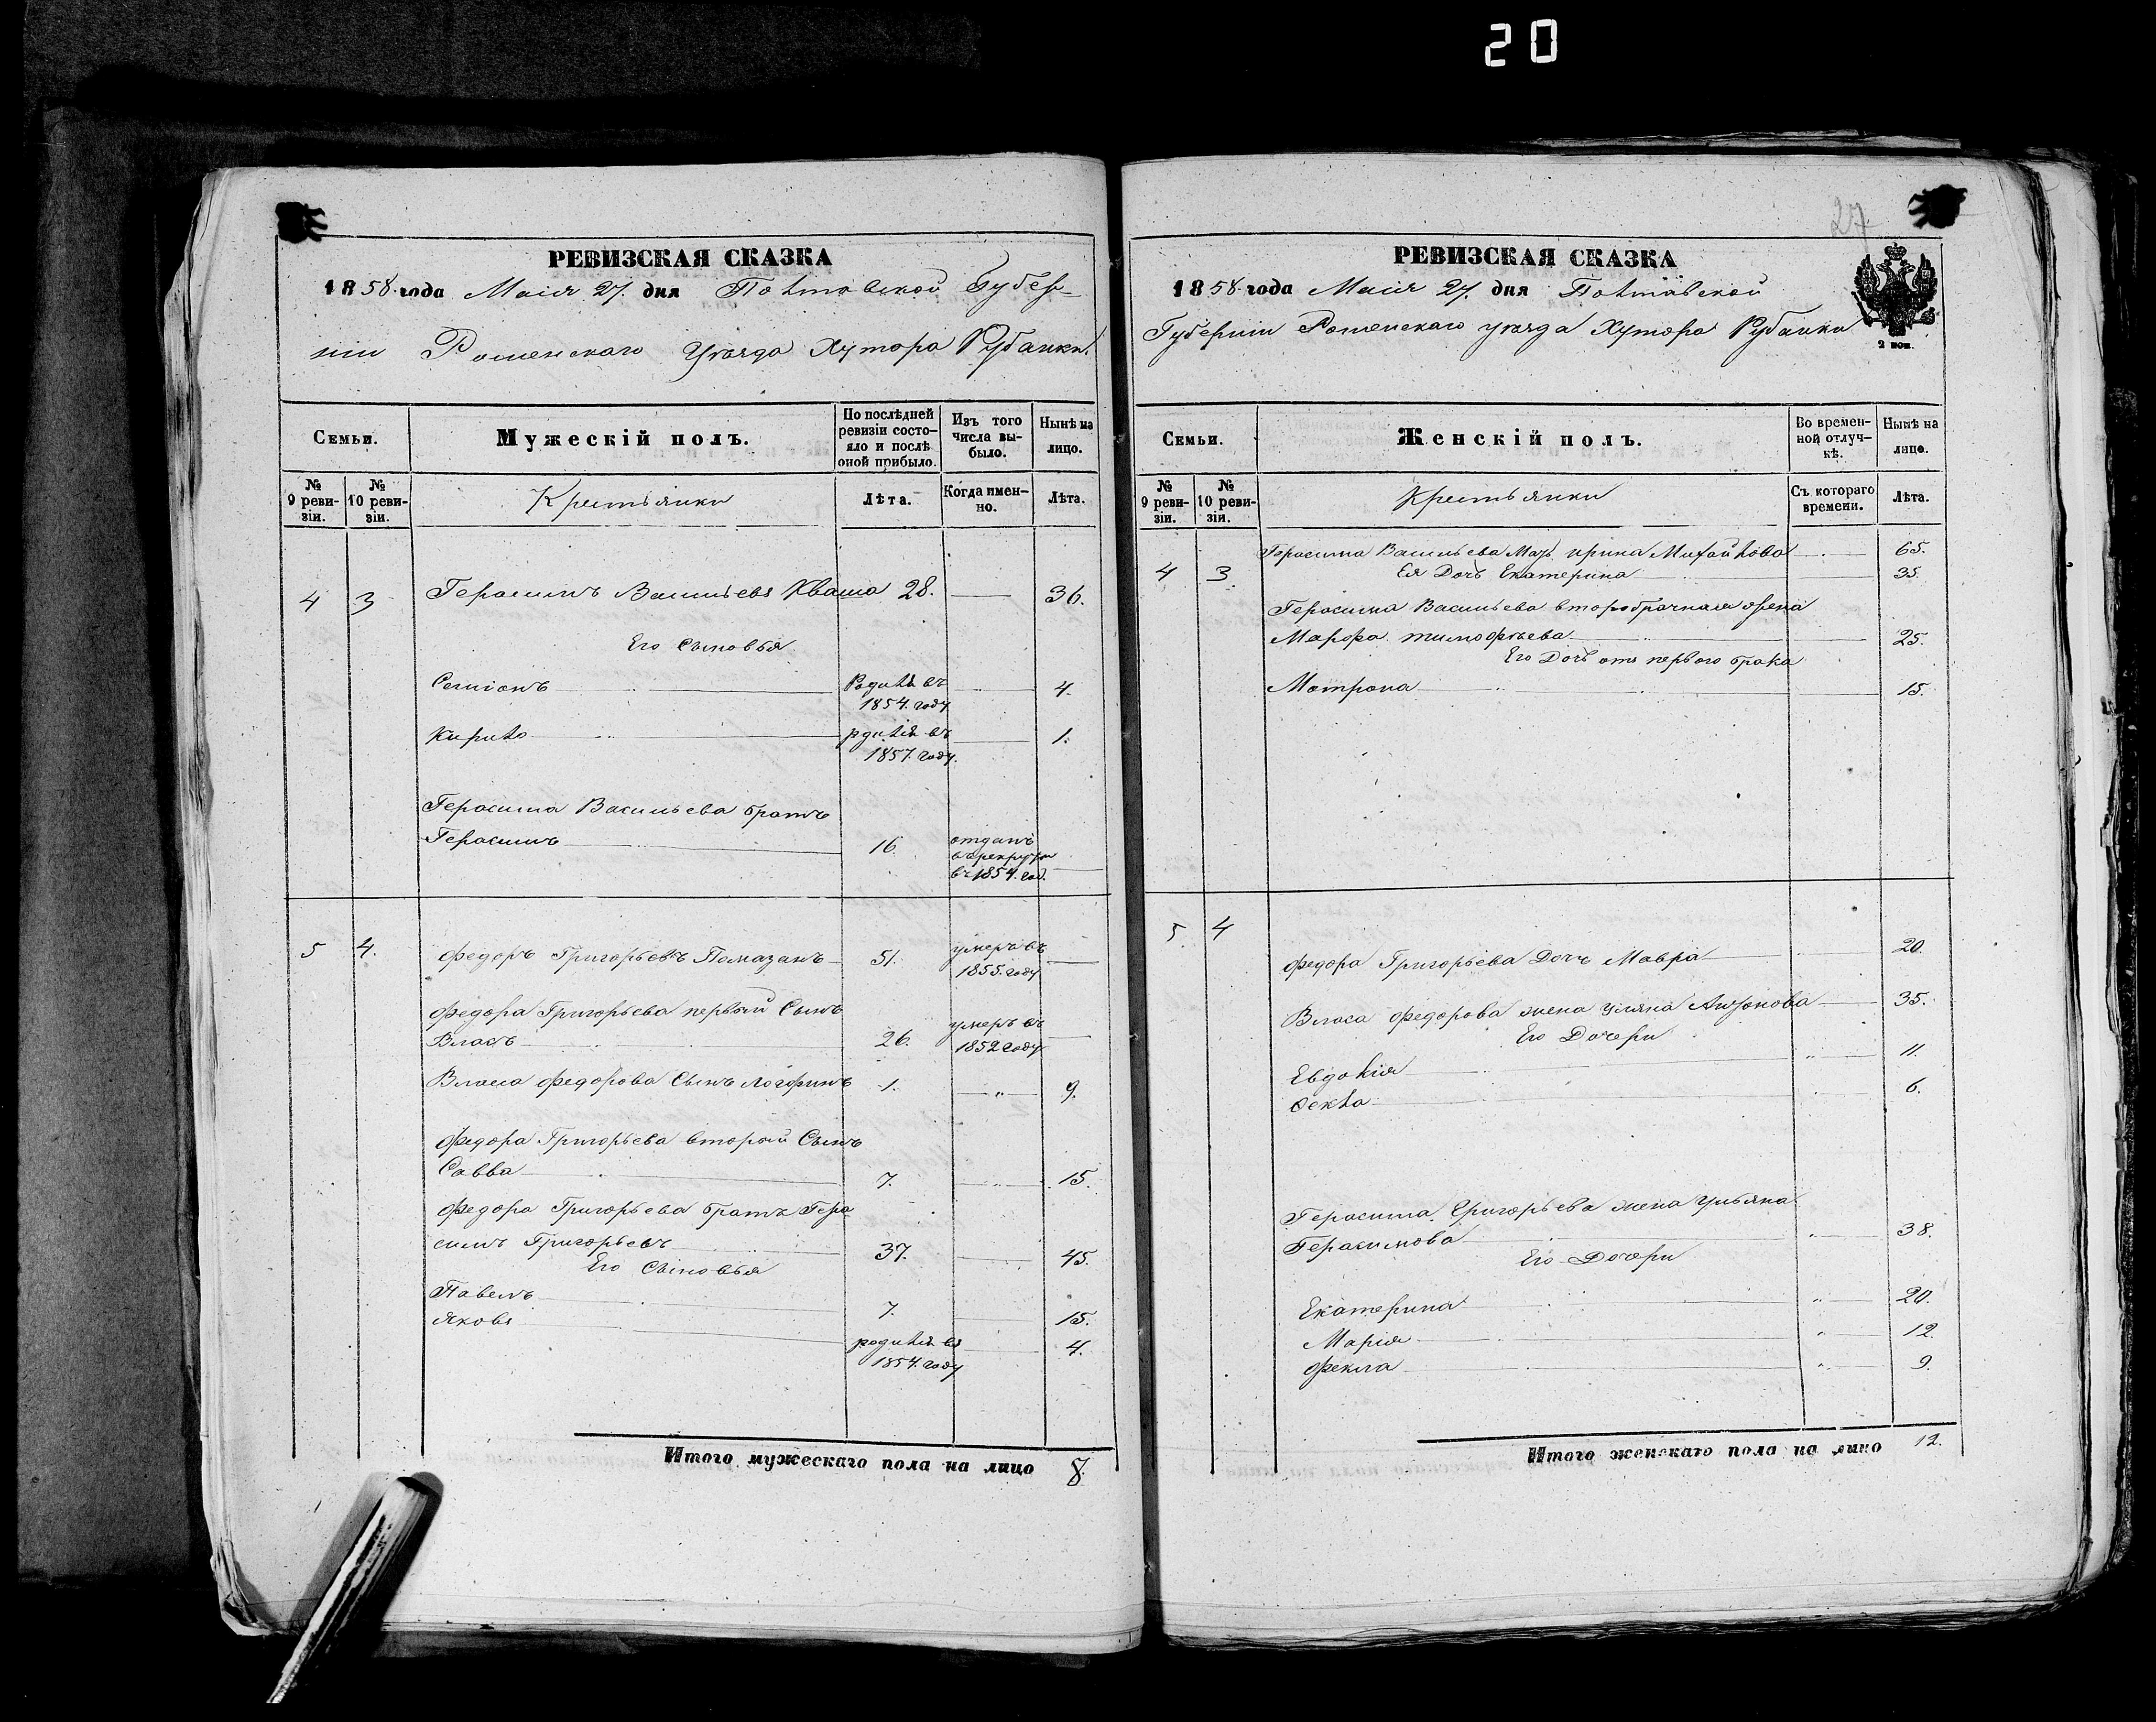 20
27
РЕВИЗСКАЯ СКАЗКА
1858 года Маія 27. дня Полтавской Губер-
ніи Роменскаго Уѣзда Хутора Рубанки.
Семьи.
Мужескій полъ.
По послѣдней ревизіи состо-яло и послѣ оной прибыло.
Изъ того числа вы-было.
Нынѣ на лицо.
№ 9 реви-зіи.
№ 10 реви-зіи.
Крестьянки
Лѣта.
Когда имен-но.
Лѣта.
4 3 Герасимъ Васильевъ Кваша 28. 36.
Его Сыновья
Семіонъ родился въ 1854. году 4.
Кирило родился въ 1857. году. 1.
Герасима Васильева братъ
Герасимъ 16. отданъ въ рекруты въ 1854. год.
5 4. Федоръ Григорьевъ Помазанъ 51. умеръ въ 1855. году
Федора Григорьева первый Сынъ
Власъ 26. умеръ въ 1852 году
Власа Федорова Сынъ Логофинъ 1. 9.
Федора Григорьева вторый Сынъ
Савва 7. 15.
Федора Григорьева братъ Гера
симъ Григорьевъ 37. 45.
Его Сыновья
Павелъ 7. 15.
Яковъ родился въ 1854. году 4.
Итого мужескаго пола на лицо 8.
РЕВИЗСКАЯ СКАЗКА
1858 года Маія 27. дня Полтавской
Губерніи Роменскаго уѣзда Хутора Рубанки
2 коп.
Семьи.
Женскій полъ.
Во времен-ной отлуч-кѣ.
Нынѣ на лицо.
№ 9 реви-зіи.
№ 10 реви-зіи.
Крестьянки
Съ котораго времени.
Лѣта.
4 3. Герасима Васильева Мать ирина Михайлова 65.
Ея Дочь Екатерина 35.
Герасима Васильева второбрачная жена
Марфа тимофѣева 25.
Его Дочь отъ первого брака
Матрона 15.
5. 4 Федора Григорьева Дочь Мавра 20.
Власа Федорова жена уляна Антонова 35.
Его Дочери
Евдокія 11.
Ѳекла 6.
Герасима Григорьева жена Ульяна
Герасимова 38.
Его Дочери
Екатерина 20.
Марія 12.
Фекла 9.
Итого женскаго пола на лицо 12.